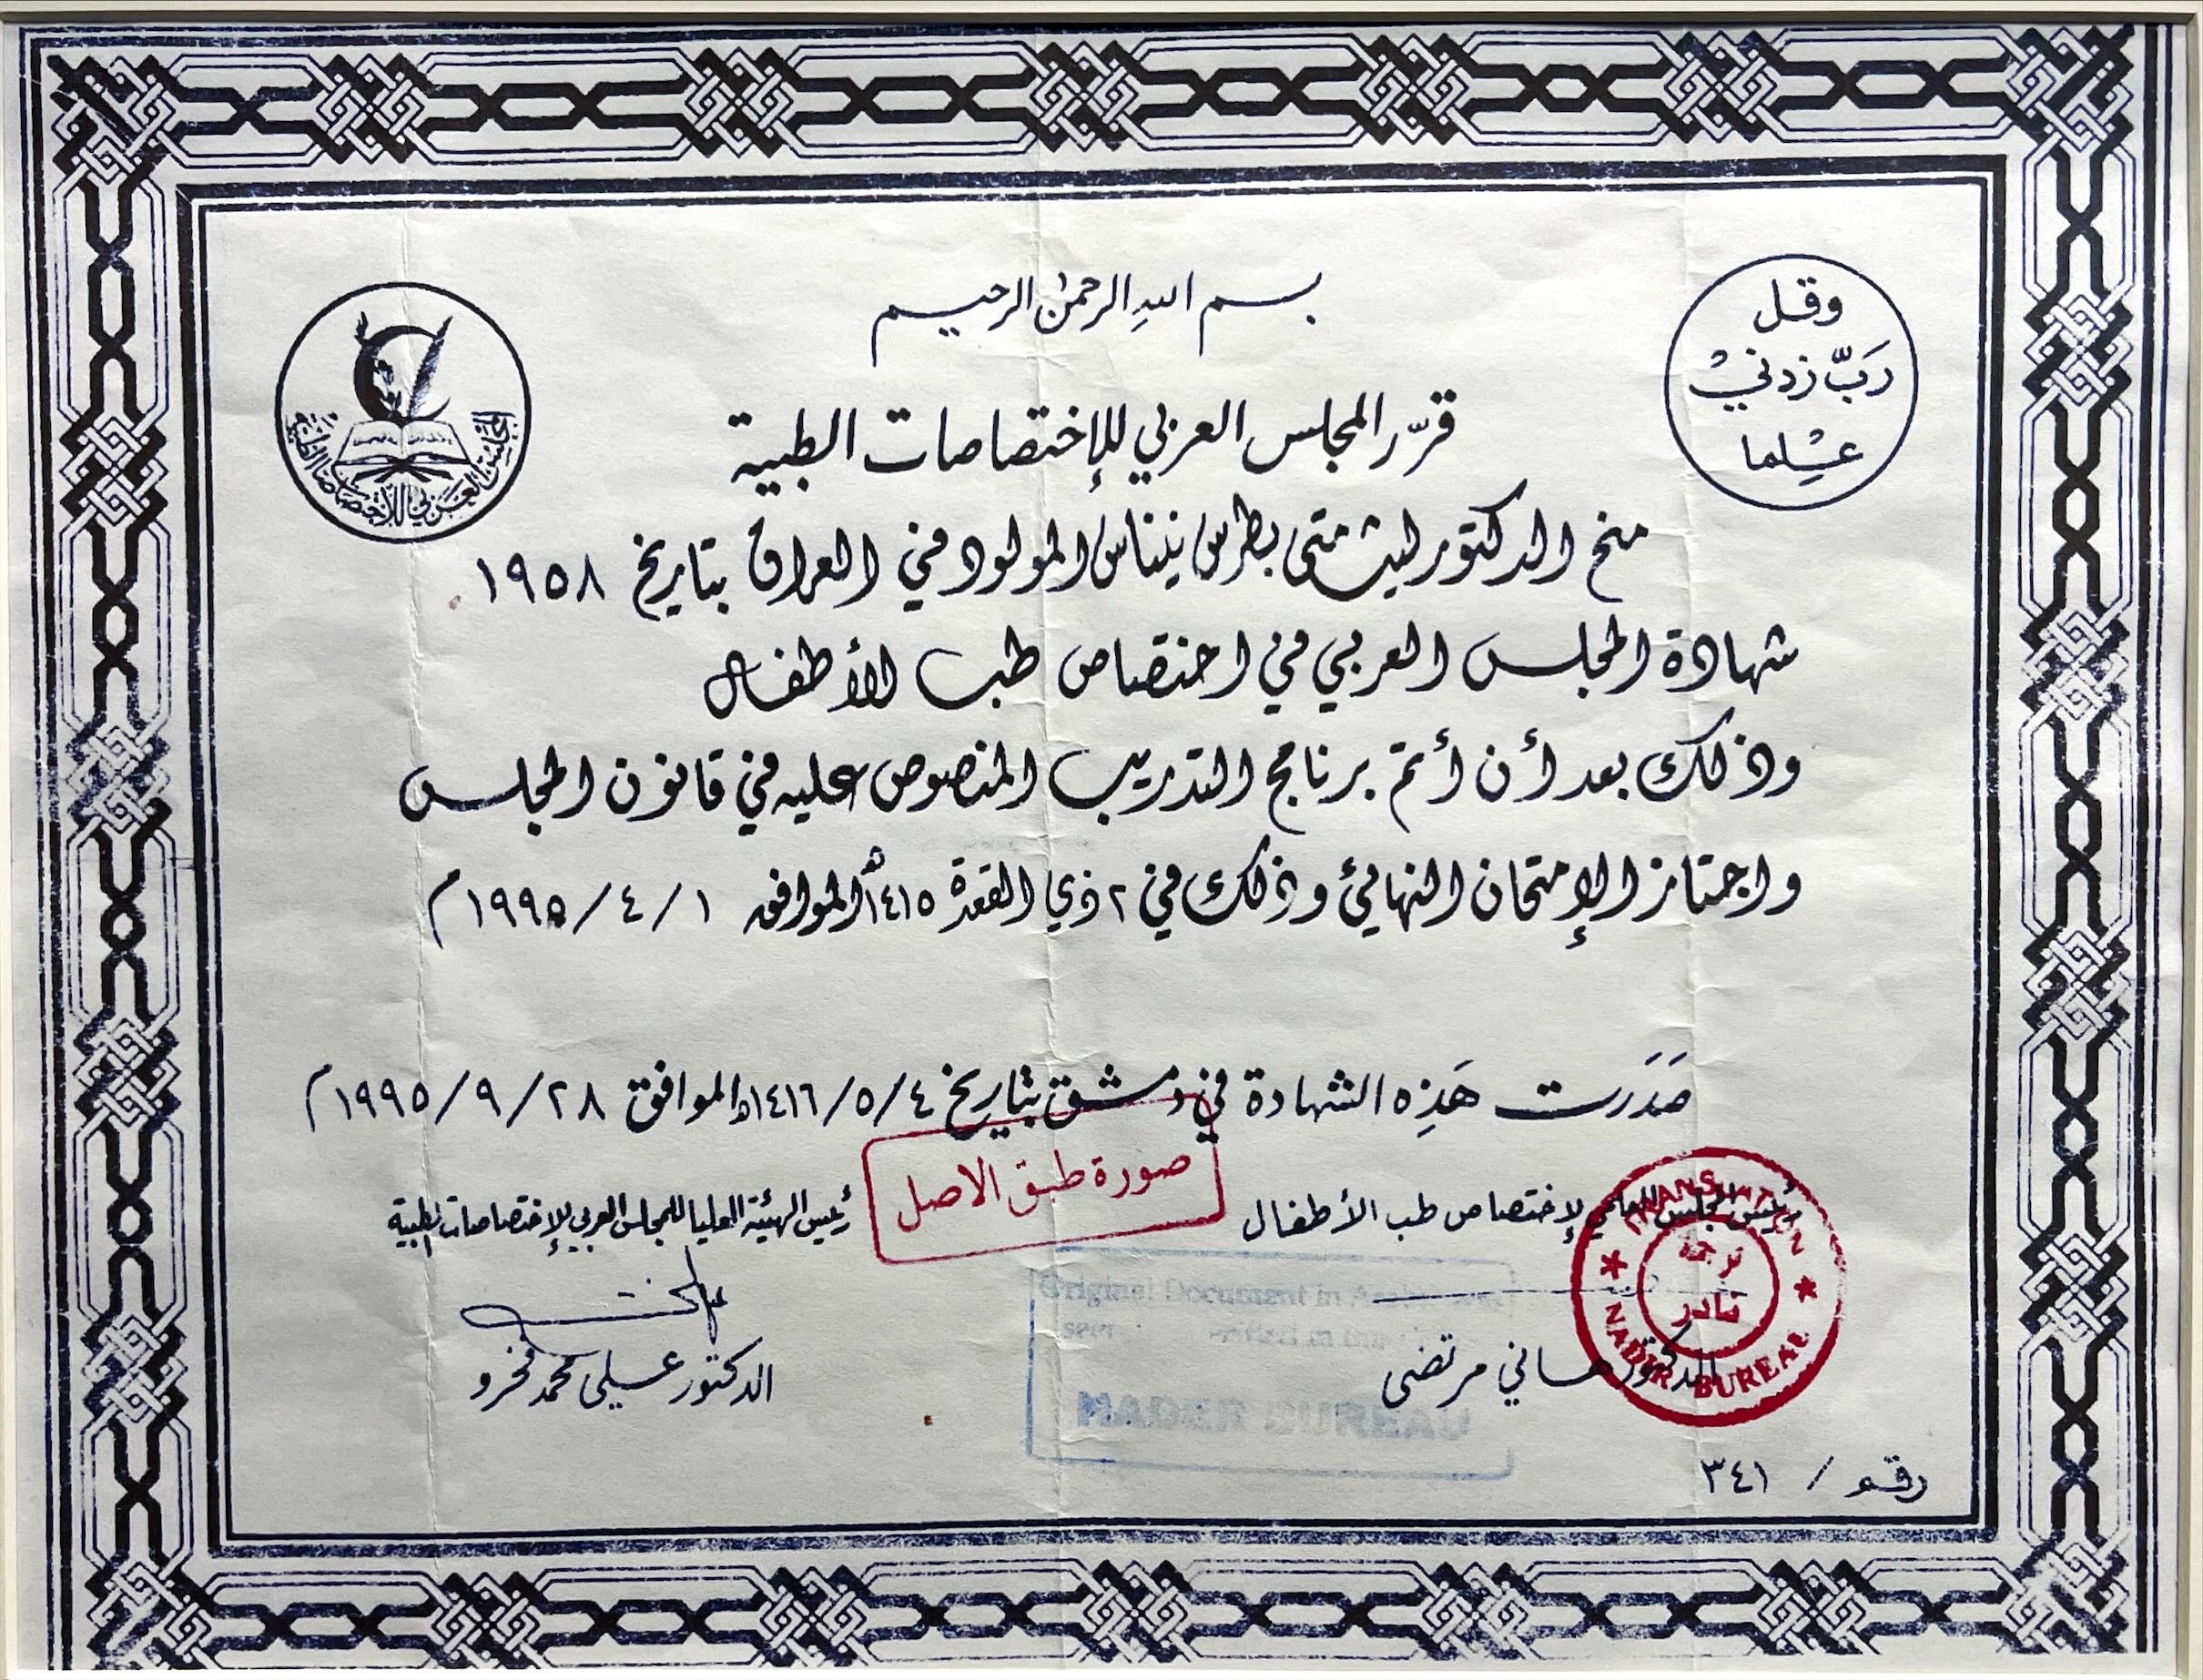 بسم الله الرحمن الرحيم
وقل
رَبّ زدنيْ
عِلْما
المجلس العربي للاختصاصات الطبية
قرّر المجلس العربي للإختصاصات الطبية
منح الدكتور ليث متى بطرس نيناس المولود في العراق بتاريخ ١٩٥٨
شهادة المجلس العربي في اختصاص طب الأطفال
وذلك بعد أن أتم برنامج التدريب المنصوص عليه في قانون المجلس
واجتاز الإمتحان النهائي وذلك في ٢ ذي القعدة ١٤١٥هـ الموافق ١ / ٤ / ١٩٩٥م
صَدَرت هَذِه الشهادة في دمشق بتاريخ ٤ /٥ /١٤١٦هـ الموافق ٢٨ /٩ /١٩٩٥م
صورة طبق الاصل
رئيس المجلس العلمي لإختصاص طب الأطفال
رئيس الهيئة العليا للمجلس العربي للإختصاصات الطبية
TRANSLATION
ترجمة
نادر
NADER BUREAU
Original Document in
NADER BUREAU
الدكتور هاني مرتضى
الدكتور علي محمد فخرو
رقم / ٣٤١